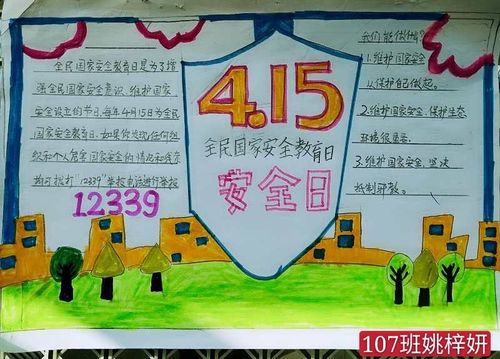 全民国家安全教育日是为了增
强全民国家安全意识、维护国家
安全设立的节日,每年4月15为全民
国家安全教育日.如果你发现任何组
织和个人危害国家安全的情况和线索
均可拨打"12339"举报电话进行举报
12339
4.15
全民国家安全教育日
安全日
我们能做什么?
1.维护国家安全
从保护自己做起。
2.维护国家安全、保护生态
环境很重要.
3.维护国家安全,坚决
抵制邪教。
107班姚梓妍